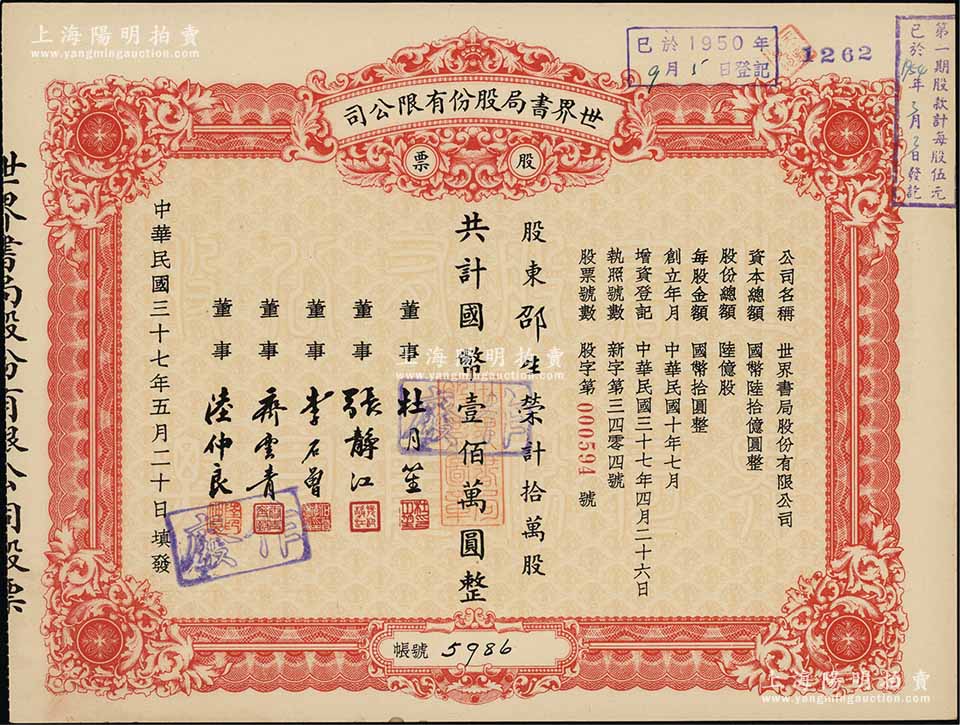 上海陽明拍賣
www.yangmingauction.com
已於1950年
9月5日登記
1262
第一期股款計每股伍元
已於1954年3月3日發訖
世界書局股份有限公司
股票
公司名稱 世界書局股份有限公司
資本總額 國幣陸拾億圓整
股份總額 陸億股
每股金額 國幣拾圓整
創立年月 中華民國十年七月
增資登記 中華民國三十七年四月二十六日
執照號數 新字第三四零四號
股票號數 股字第000594號
股東邵生榮計拾萬股
共計國幣壹佰萬圓整
董事 杜月笙
董事 張靜江
董事 李石曾
董事 齊雲青
董事 陸仲良
作廢
作廢
中華民國三十七年五月二十日填發
世界書局股份有限公司股票
帳號 5986
上海陽明拍賣
www.yangmingauction.com
上海陽明拍賣
www.yangmingauction.com